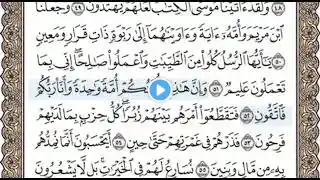 ٤٨ وَلَقَدْ ءَاتَيْنَا مُوسَى ٱلْكِتَٰبَ لَعَلَّهُمْ يَهْتَدُونَ ٤٩ وَجَعَلْنَا
ٱبْنَ مَرْيَمَ وَأُمَّهُۥٓ ءَايَةً وَءَاوَيْنَٰهُمَآ إِلَىٰ رَبْوَةٍ ذَاتِ قَرَارٍ وَمَعِينٍ
٥٠ يَٰٓأَيُّهَا ٱلرُّسُلُ كُلُوا۟ مِنَ ٱلطَّيِّبَٰتِ وَٱعْمَلُوا۟ صَٰلِحًا ۖ إِنِّى بِمَا
تَعْمَلُونَ عَلِيمٌ ٥١ وَإِنَّ هَٰذِهِۦٓ أُمَّةً وَٰحِدَةً وَأَنَا۠ رَبُّكُمْ
فَٱتَّقُونِ ٥٢ فَتَقَطَّعُوٓا۟ أَمْرَهُم بَيْنَهُمْ زُبُرًا ۖ كُلُّ حِزْبٍۭ بِمَا لَدَيْهِمْ
فَرِحُونَ ٥٣ فَذَرْهُمْ فِى غَمْرَتِهِمْ حَتَّىٰ حِينٍ ٥٤ أَيَحْسَبُونَ أَنَّمَا نُمِدُّهُم
بِهِۦ مِن مَّالٍ وَبَنِينَ ٥٥ نُسَارِعُ لَهُمْ فِى ٱلْخَيْرَٰتِ ۚ بَل لَّا يَشْعُرُونَ